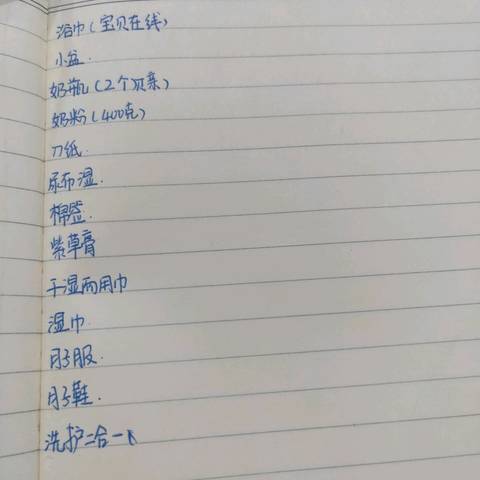 浴巾(宝贝在线)
小盆.
奶瓶(2个贝亲)
奶粉(400克)
刀纸.
尿布湿.
棉签.
紫草膏
干湿两用巾
湿巾.
月子服.
月子鞋.
洗护二合一